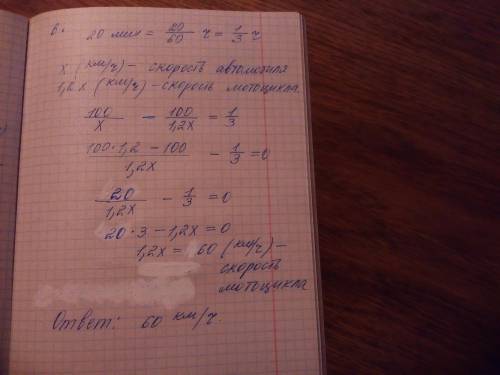 6.
20 мин = 20/60 ч = 1/3 ч
x (км/ч) - скорость автомобиля
1,2x (км/ч) - скорость мотоцикла.
100/x - 100/1,2x = 1/3
100·1,2 - 100/1,2x - 1/3 = 0
20/1,2x - 1/3 = 0
20·3 - 1,2x = 0
1,2x = 60 (км/ч) -
скорость
мотоцикла
Ответ: 60 км/ч.